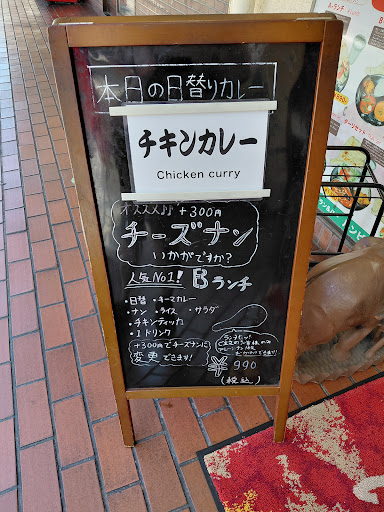 本日の日替りカレー
チキンカレー
Chicken curry
オススメ♪♪ +300円
チーズナン
いかがですか?
人気No1! Bランチ
・日替 ・キーマカレー
・ナン ・ライス ・サラダ
・チキンティッカ
・1ドリンク
+300円でチーズナンに
変更できます!
¥990
(税込)